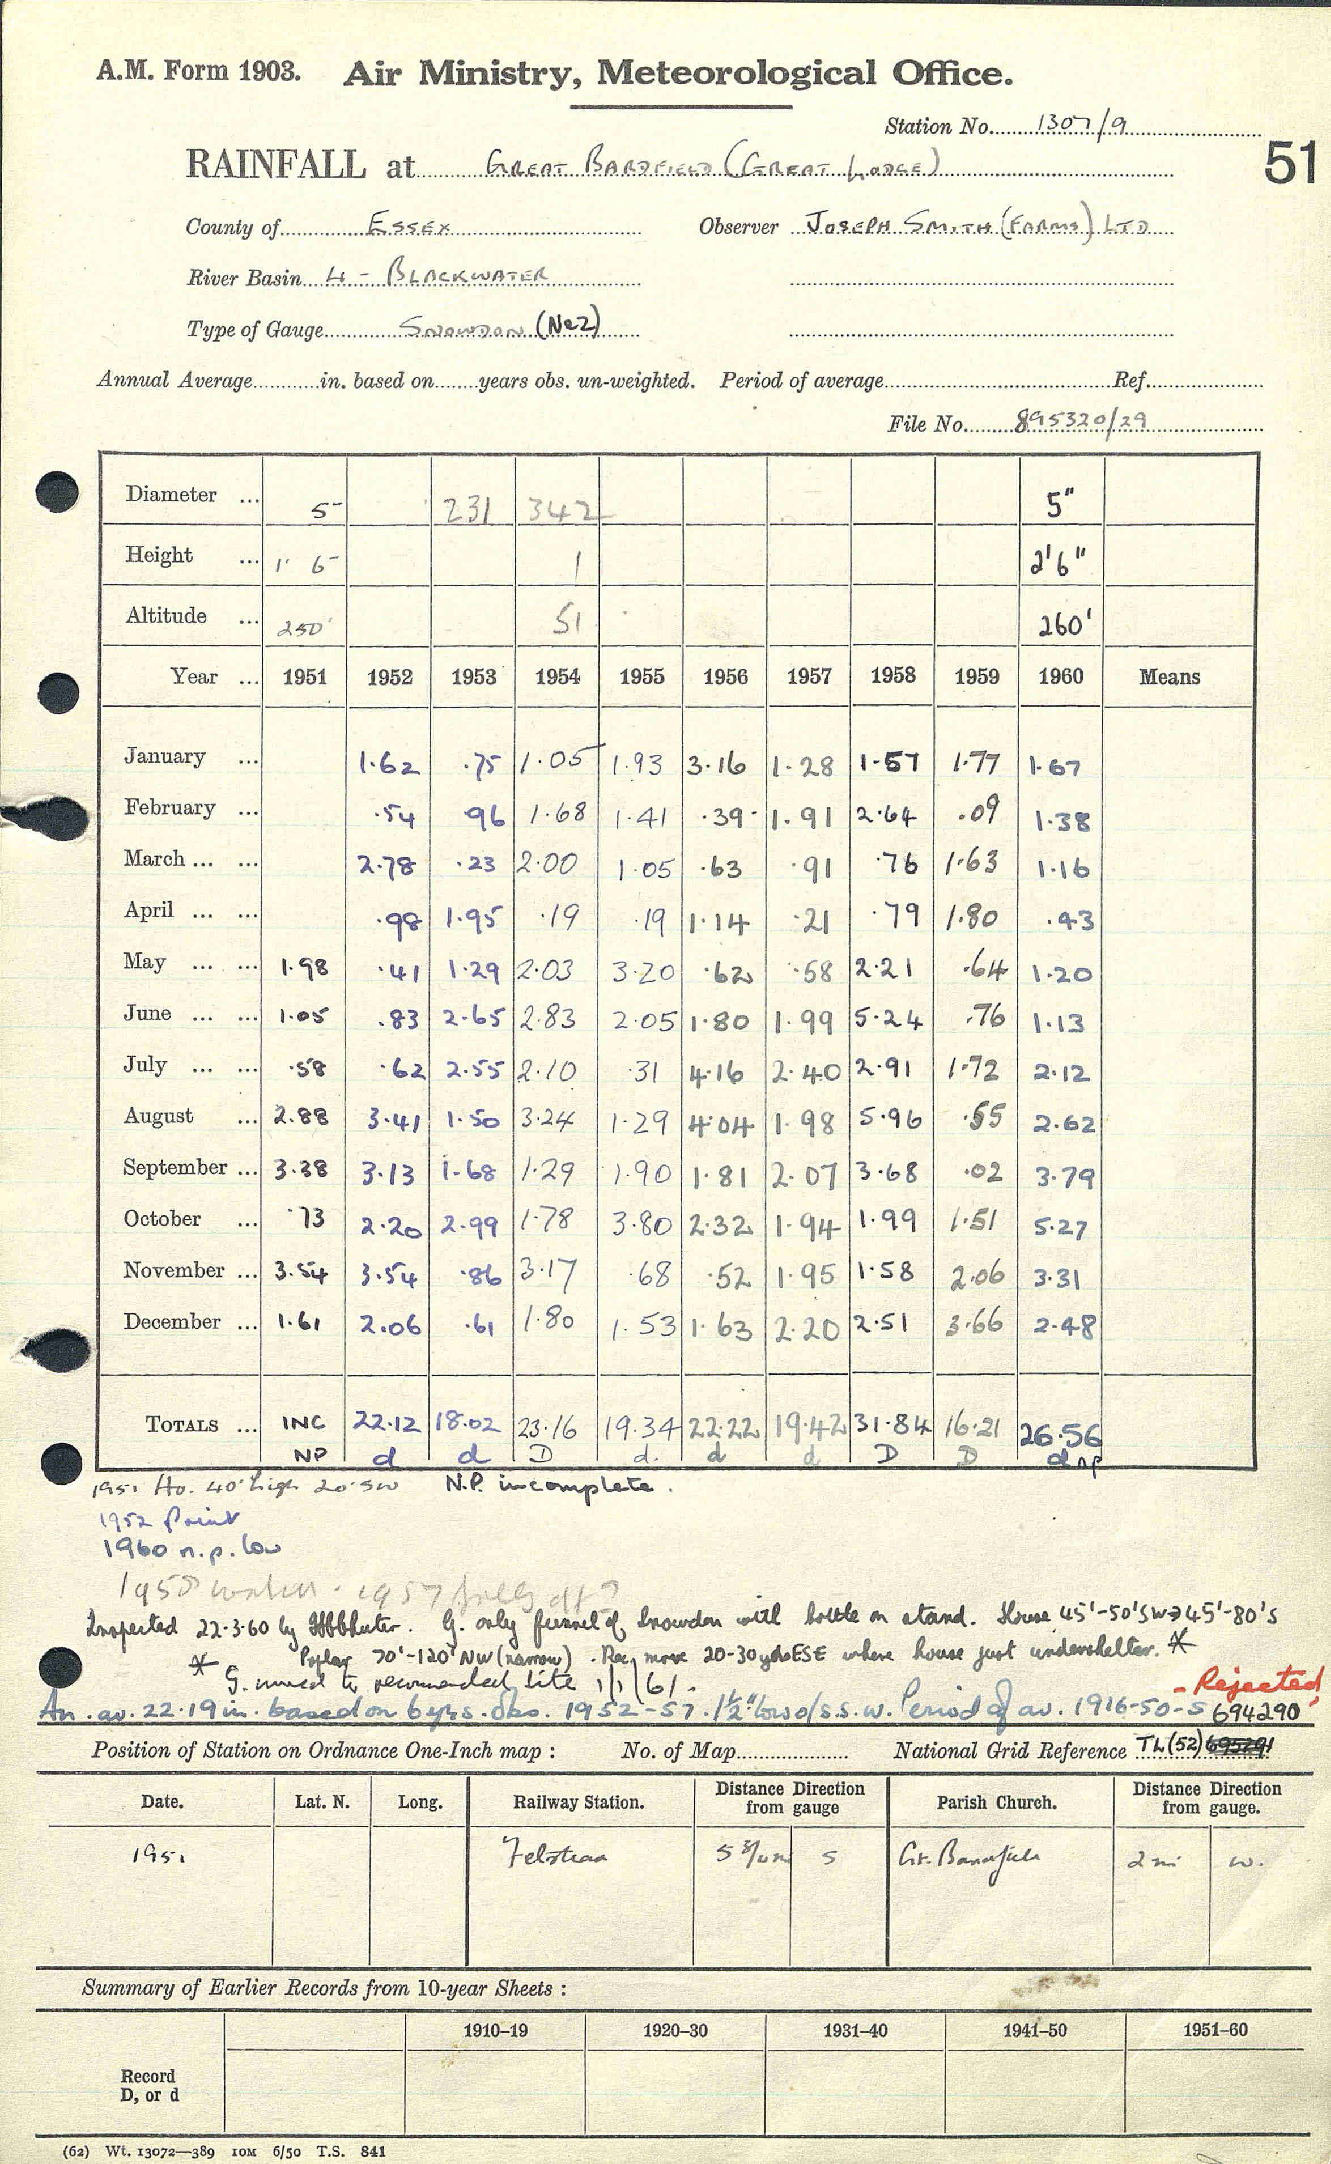 A.M. Form 1903. Air Ministry, Meteorological Office.
Station No. 1307/9
51
RAINFALL at GREAT BARDFIELD (GREAT LODGE)
County of ESSEX Observer JOSEPH SMITH (FARMS) LTD
River Basin 4 - BLACKWATER
Type of Gauge SNOWDON (Ne2)
Annual Average in. based on years obs. un-weighted. Period of average Ref.
File No. 895320/29
Diameter ... 5 231 342 5"
Height ... 1' 6 1 2'6"
Altitude ... 250' 51 260'
Year ... 1951 1952 1953 1954 1955 1956 1957 1958 1959 1960 Means
January ... 1.62 .75 1.05 1.93 3.16 1.28 1.57 1.77 1.67
February ... .54 .96 1.68 1.41 .39 1.91 2.64 .09 1.38
March ... ... 2.78 .23 2.00 1.05 .63 .91 .76 1.63 1.16
April ... ... .98 1.95 .19 .19 1.14 .21 .79 1.80 .43
May ... ... 1.98 .41 1.29 2.03 3.20 .62 .58 2.21 .64 1.20
June ... ... 1.05 .83 2.65 2.83 2.05 1.80 1.99 5.24 .76 1.13
July ... ... .58 .62 2.55 2.10 .31 4.16 2.40 2.91 1.72 2.12
August ... 2.88 3.41 1.50 3.24 1.29 4.04 1.98 5.96 .55 2.62
September ... 3.38 3.13 1.68 1.29 1.90 1.81 2.07 3.68 .02 3.79
October ... .73 2.20 2.99 1.78 3.80 2.32 1.94 1.99 1.51 5.27
November ... 3.54 3.54 .86 3.17 .68 .52 1.95 1.58 2.06 3.31
December ... 1.61 2.06 .61 1.80 1.53 1.63 2.20 2.51 3.66 2.48
TOTALS ... INC 22.12 18.02 23.16 19.34 22.22 19.42 31.84 16.21 26.56
NP d d D d. d d D D d np
1951 Ho. 40' high 20' SW N.P. incomplete.
1952 Point
1960 n.p. low
1958 1957 falls off?
Inspected 22.3.60 by G. only funnel of Snowdon with bottle on stand. House 45'-50'SW→45'-80'S
* Poplar 70'-120' NW (narrow). Rec. move 20-30 yds ESE where house just undershelter. *
G. moved to recommended site 1/1/61.
- Rejected
An. av. 22.19 in. based on 6 yrs. obs. 1952-57. 1½" low o/s.s.w. Period of av. 1916-50-S 694290
Position of Station on Ordnance One-Inch map : No. of Map National Grid Reference TL(52) 695291
Date. Lat. N. Long. Railway Station. Distance Direction from gauge Parish Church. Distance Direction from gauge.
1951 Felstead 5 3/4 m S Gt. Bardfield 2 mi W.
Summary of Earlier Records from 10-year Sheets :
1910–19 1920–30 1931–40 1941–50 1951–60
Record
D, or d
(62) Wt. 13072—389 10M 6/50 T.S. 841